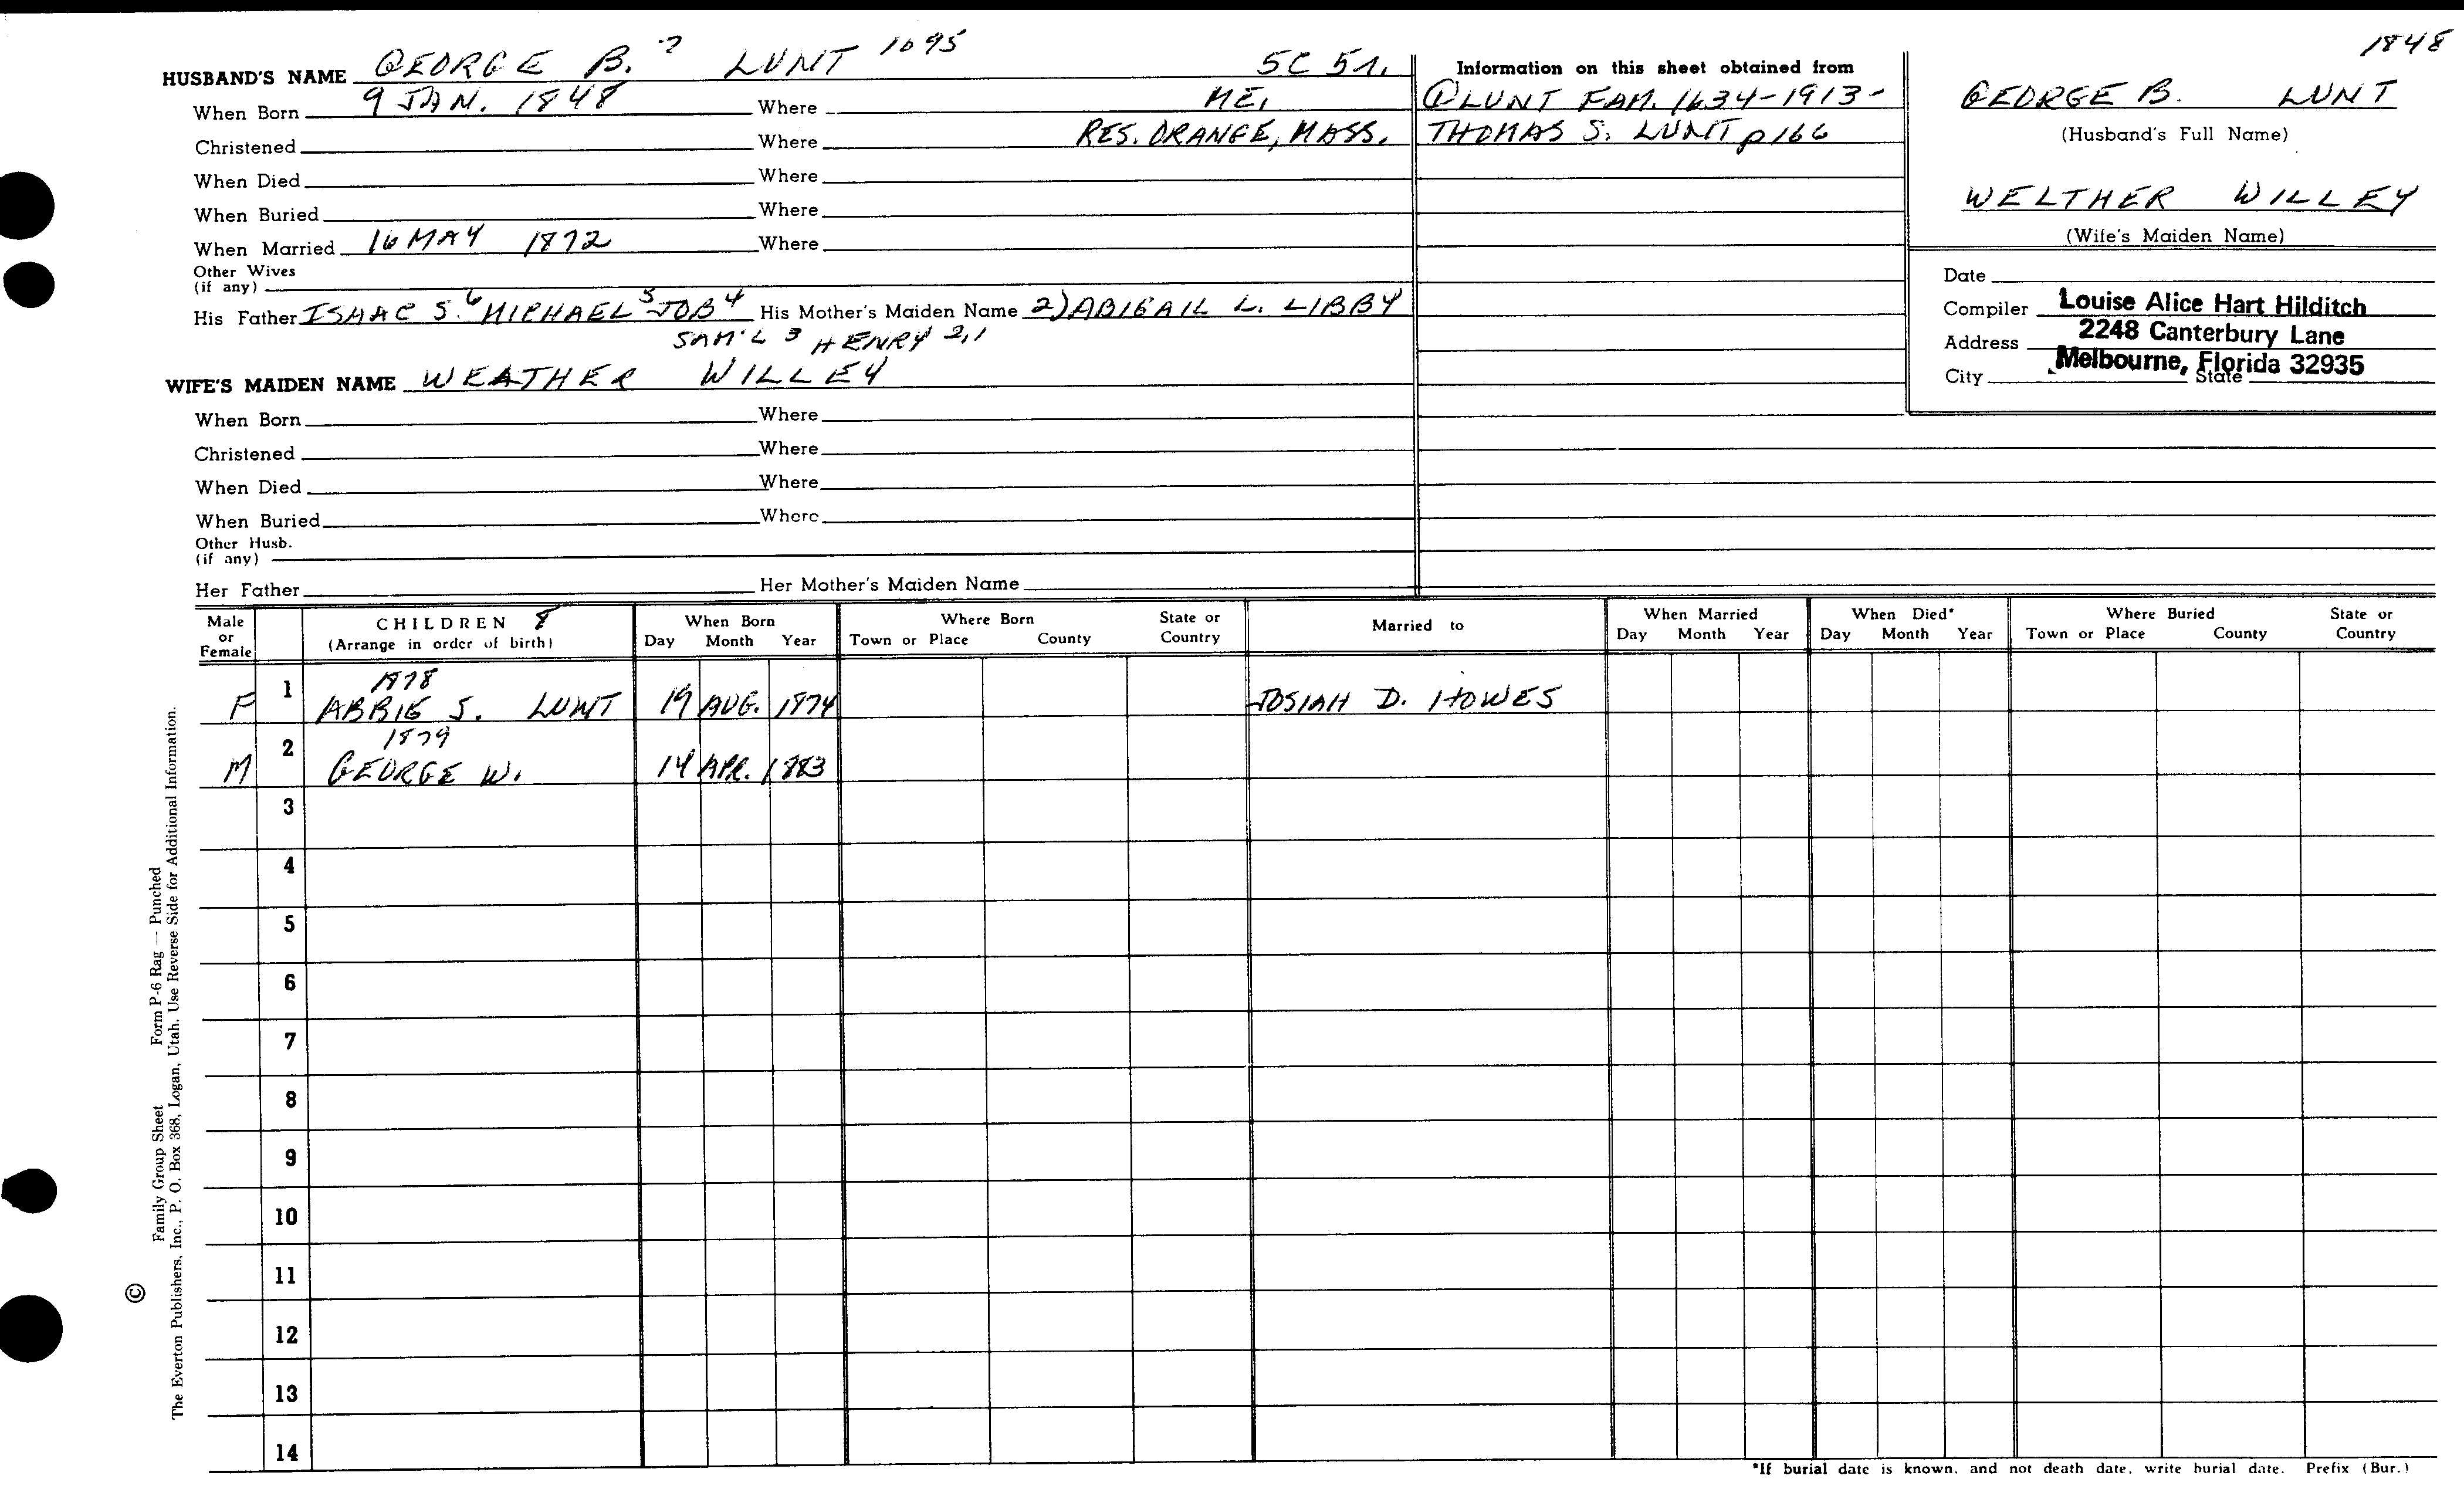 1848
HUSBAND'S NAME GEORGE B.7 LUNT 1095 SC 51.
When Born 9 JAN. 1848 Where ME.
Christened Where RES. ORANGE, MASS.
When Died Where
When Buried Where
When Married 16 MAY 1872 Where
Other Wives
(if any)
His Father ISAAC S.6 MICHAEL5 JOB4 His Mother's Maiden Name 2) ABIGAIL L. LIBBY
SAM'L3 HENRY2,1
WIFE'S MAIDEN NAME WEATHER WILLEY
When Born Where
Christened Where
When Died Where
When Buried Where
Other Husb.
(if any)
Her Father Her Mother's Maiden Name
Information on this sheet obtained from
① LUNT FAM. 1634-1913-
THOMAS S. LUNT p166
GEORGE B. LUNT
(Husband's Full Name)
WELTHER WILLEY
(Wife's Maiden Name)
Date
Compiler Louise Alice Hart Hilditch
Address 2248 Canterbury Lane
Melbourne, Florida 32935
City State
Male or Female CHILDREN 8 (Arrange in order of birth) When Born Day Month Year Where Born Town or Place County State or Country Married to When Married Day Month Year When Died* Day Month Year Where Buried Town or Place County State or Country
1878
F 1 ABBIE S. LUNT 19 AUG. 1874 JOSIAH D. HOWES
1879
M 2 GEORGE W. 14 APR. 1883
3
4
5
6
7
8
9
10
11
12
13
14
*If burial date is known, and not death date, write burial date. Prefix (Bur.)
© Family Group Sheet Form P-6 Rag — Punched
The Everton Publishers, Inc., P. O. Box 368, Logan, Utah. Use Reverse Side for Additional Information.